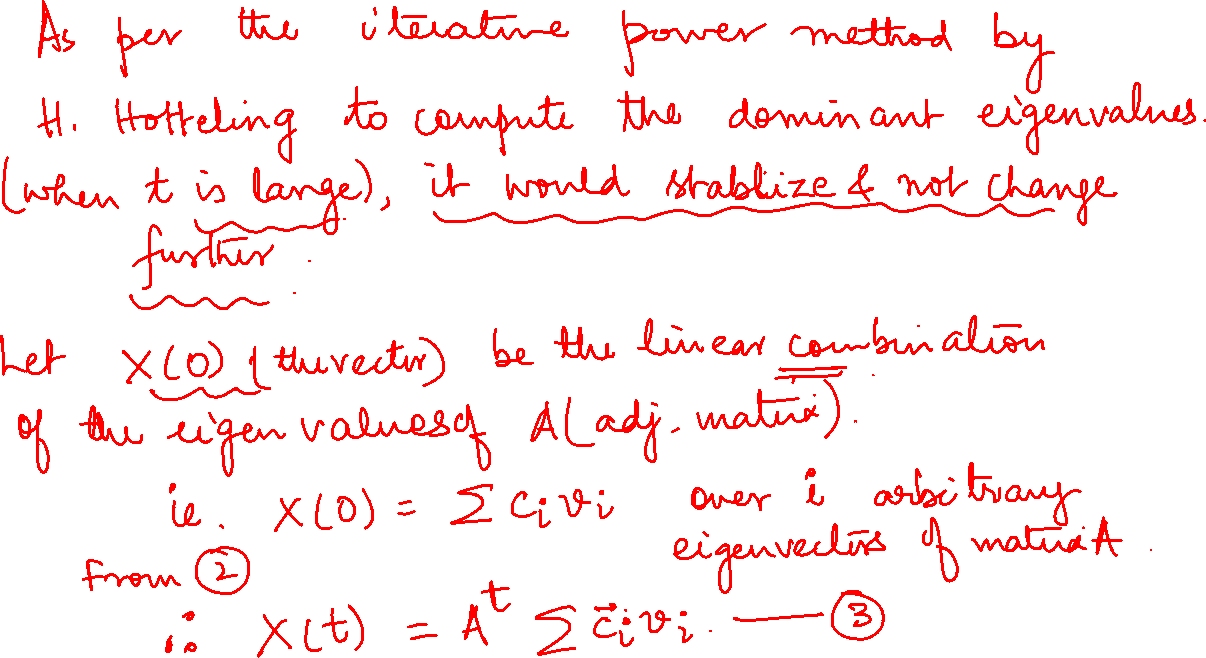 As per the iterative power method by
H. Hotteling to compute the dominant eigenvalues.
(when t is large), it would stablize & not change
further.
Let X(0) (the vector) be the linear combination
of the eigen values of A (adj. matrix).
ie. X(0) = Σ cᵢ vᵢ over i arbitrary
eigenvectors of matrix A.
From ②
∴ X(t) = Aᵗ Σ c⃗ᵢ vᵢ. —— ③